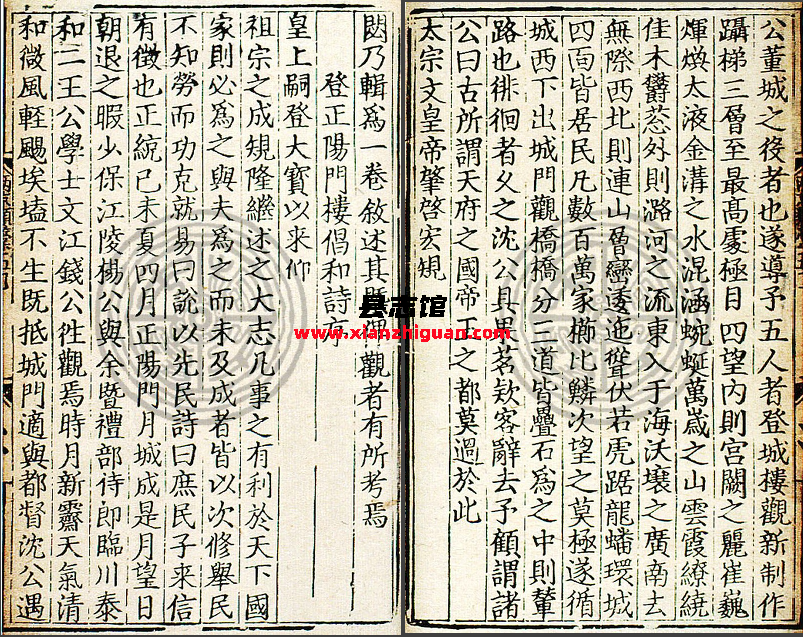 乃輯爲一卷敘述其觀者有所考焉
登正陽門樓倡和詩序
皇上嗣登大寶以來仰
祖宗之成規隆繼述之大志凡事之有利於天下國
家則必爲之與夫爲之而未及成者皆以次修舉民
不知勞而功克就易曰說以先民詩曰庶民子来信
有徴也正統己未夏四月正陽門月城成是月望日
朝退之暇少保江陵楊公與余暨禮部侍郎臨川泰
和二王公學士文江錢公徃觀焉時月新霽天氣清
和微風軽颺埃壒不生既抵城門適與都督沈公遇
公董城之役者也遂導予五人者登城樓觀新制作
躡梯三層至最髙處極目四望内則宮闕之麗崔巍
煇煥太液金溝之水混涵蜿蜒萬歲之山雲霞繚繞
佳木欝葱外則潞河之流東入于海沃壤之廣南去
無際西北則連山層巒逶迤聳伏若虎踞龍蟠環城
四靣皆居民凡數百萬家櫛比鱗次望之莫極遂循
城西下出城門觀橋橋分三道皆疊石爲之中則輦
路也徘徊者久之沈公具果茗欵客辭去予顧謂諸
公曰古所謂天府之國帝王之都莫過於此
太宗文皇帝肇啓宏規
县志馆
www.xianzhiguan.com